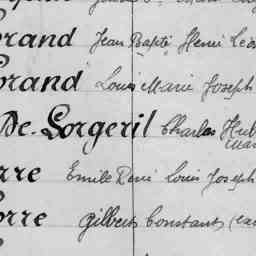 orand Jean Bapte Henri Léo
orand Louis Marie Joseph
De Lorgeril Charles Hub
Mar
rre Emile René Louis Joseph
orre Gilbert Constant (ca